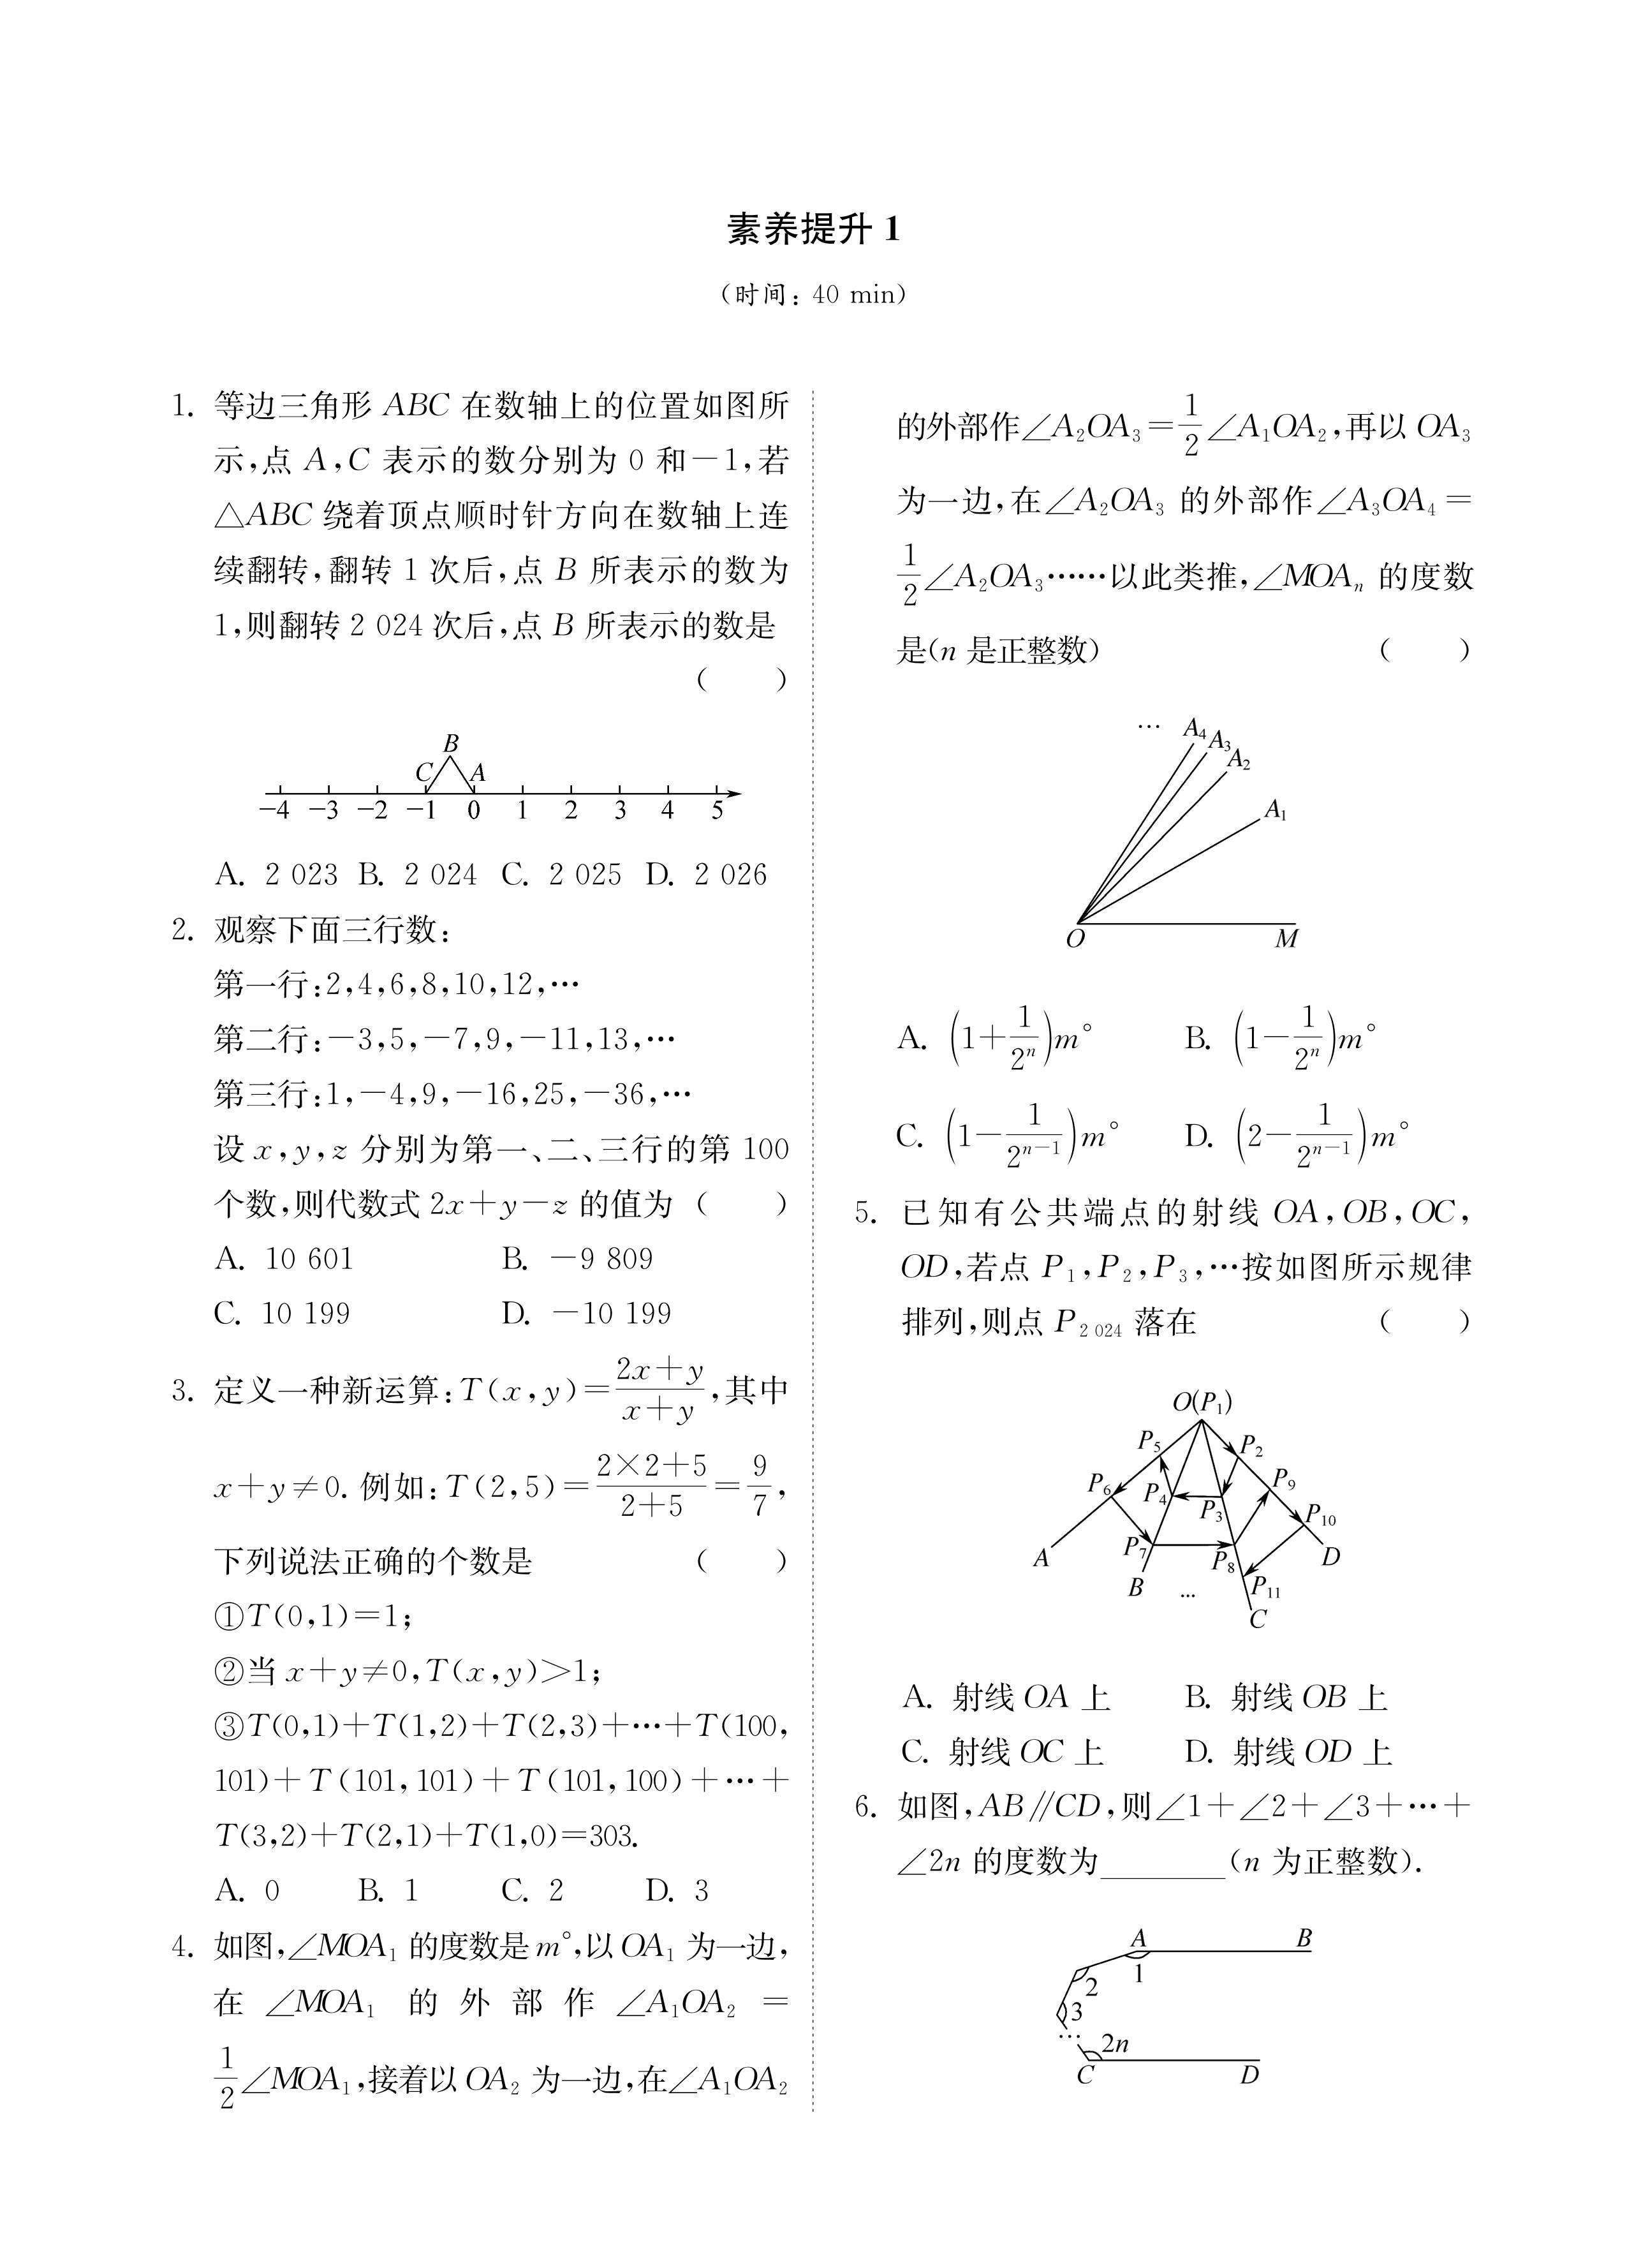 素养提升 1
(时间: 40 min)
1. 等边三角形 ABC 在数轴上的位置如图所
示,点 A,C 表示的数分别为 0 和-1,若
△ABC 绕着顶点顺时针方向在数轴上连
续翻转,翻转 1 次后,点 B 所表示的数为
1,则翻转 2 024 次后,点 B 所表示的数是
( )
B
C A
-4 -3 -2 -1 0 1 2 3 4 5
A. 2 023 B. 2 024 C. 2 025 D. 2 026
2. 观察下面三行数:
第一行:2,4,6,8,10,12,…
第二行:-3,5,-7,9,-11,13,…
第三行:1,-4,9,-16,25,-36,…
设 x,y,z 分别为第一、二、三行的第 100
个数,则代数式 2x+y-z 的值为 ( )
A. 10 601 B. -9 809
C. 10 199 D. -10 199
3. 定义一种新运算:T(x,y)=\frac{2x+y}{x+y},其中
x+y≠0. 例如:T(2,5)=\frac{2×2+5}{2+5}=\frac{9}{7},
下列说法正确的个数是 ( )
①T(0,1)=1;
②当 x+y≠0,T(x,y)>1;
③T(0,1)+T(1,2)+T(2,3)+…+T(100,
101)+T(101,101)+T(101,100)+…+
T(3,2)+T(2,1)+T(1,0)=303.
A. 0 B. 1 C. 2 D. 3
4. 如图,∠MOA₁ 的度数是 m°,以 OA₁ 为一边,
在 ∠MOA₁ 的外部作 ∠A₁OA₂ =
\frac{1}{2}∠MOA₁,接着以 OA₂ 为一边,在∠A₁OA₂
的外部作∠A₂OA₃=\frac{1}{2}∠A₁OA₂,再以 OA₃
为一边,在∠A₂OA₃ 的外部作∠A₃OA₄=
\frac{1}{2}∠A₂OA₃……以此类推,∠MOAₙ 的度数
是(n 是正整数) ( )
… A₄ A₃ A₂
A₁
O M
A. (1+\frac{1}{2ⁿ})m° B. (1-\frac{1}{2ⁿ})m°
C. (1-\frac{1}{2ⁿ⁻¹})m° D. (2-\frac{1}{2ⁿ⁻¹})m°
5. 已知有公共端点的射线 OA,OB,OC,
OD,若点 P₁,P₂,P₃,…按如图所示规律
排列,则点 P₂ ₀₂₄ 落在 ( )
O(P₁)
P₅ P₂
P₆ P₄ P₃ P₉
P₁₀
A P₇ P₈ D
B … P₁₁
C
A. 射线 OA 上 B. 射线 OB 上
C. 射线 OC 上 D. 射线 OD 上
6. 如图,AB∥CD,则∠1+∠2+∠3+…+
∠2n 的度数为________(n 为正整数).
A B
1
2
3
… 2n
C D